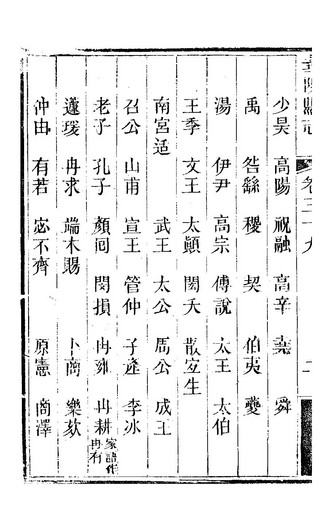 縣志 卷三十九
少昊 高陽 祝融 高辛 堯 舜
禹 咎繇 稷 契 伯夷 夔
湯 伊尹 高宗 傅說 太王 太伯
王季 文王 太顛 閎夭 散宜生
南宮适 武王 太公 周公 成王
召公 山甫 宣王 管仲 子產 李冰
老子 孔子 顏囘 閔損 冉雍 冉耕 家語作冉有
蘧瑗 冉求 端木賜 卜商 樂欬
仲由 有若 宓不齊 原憲 商澤